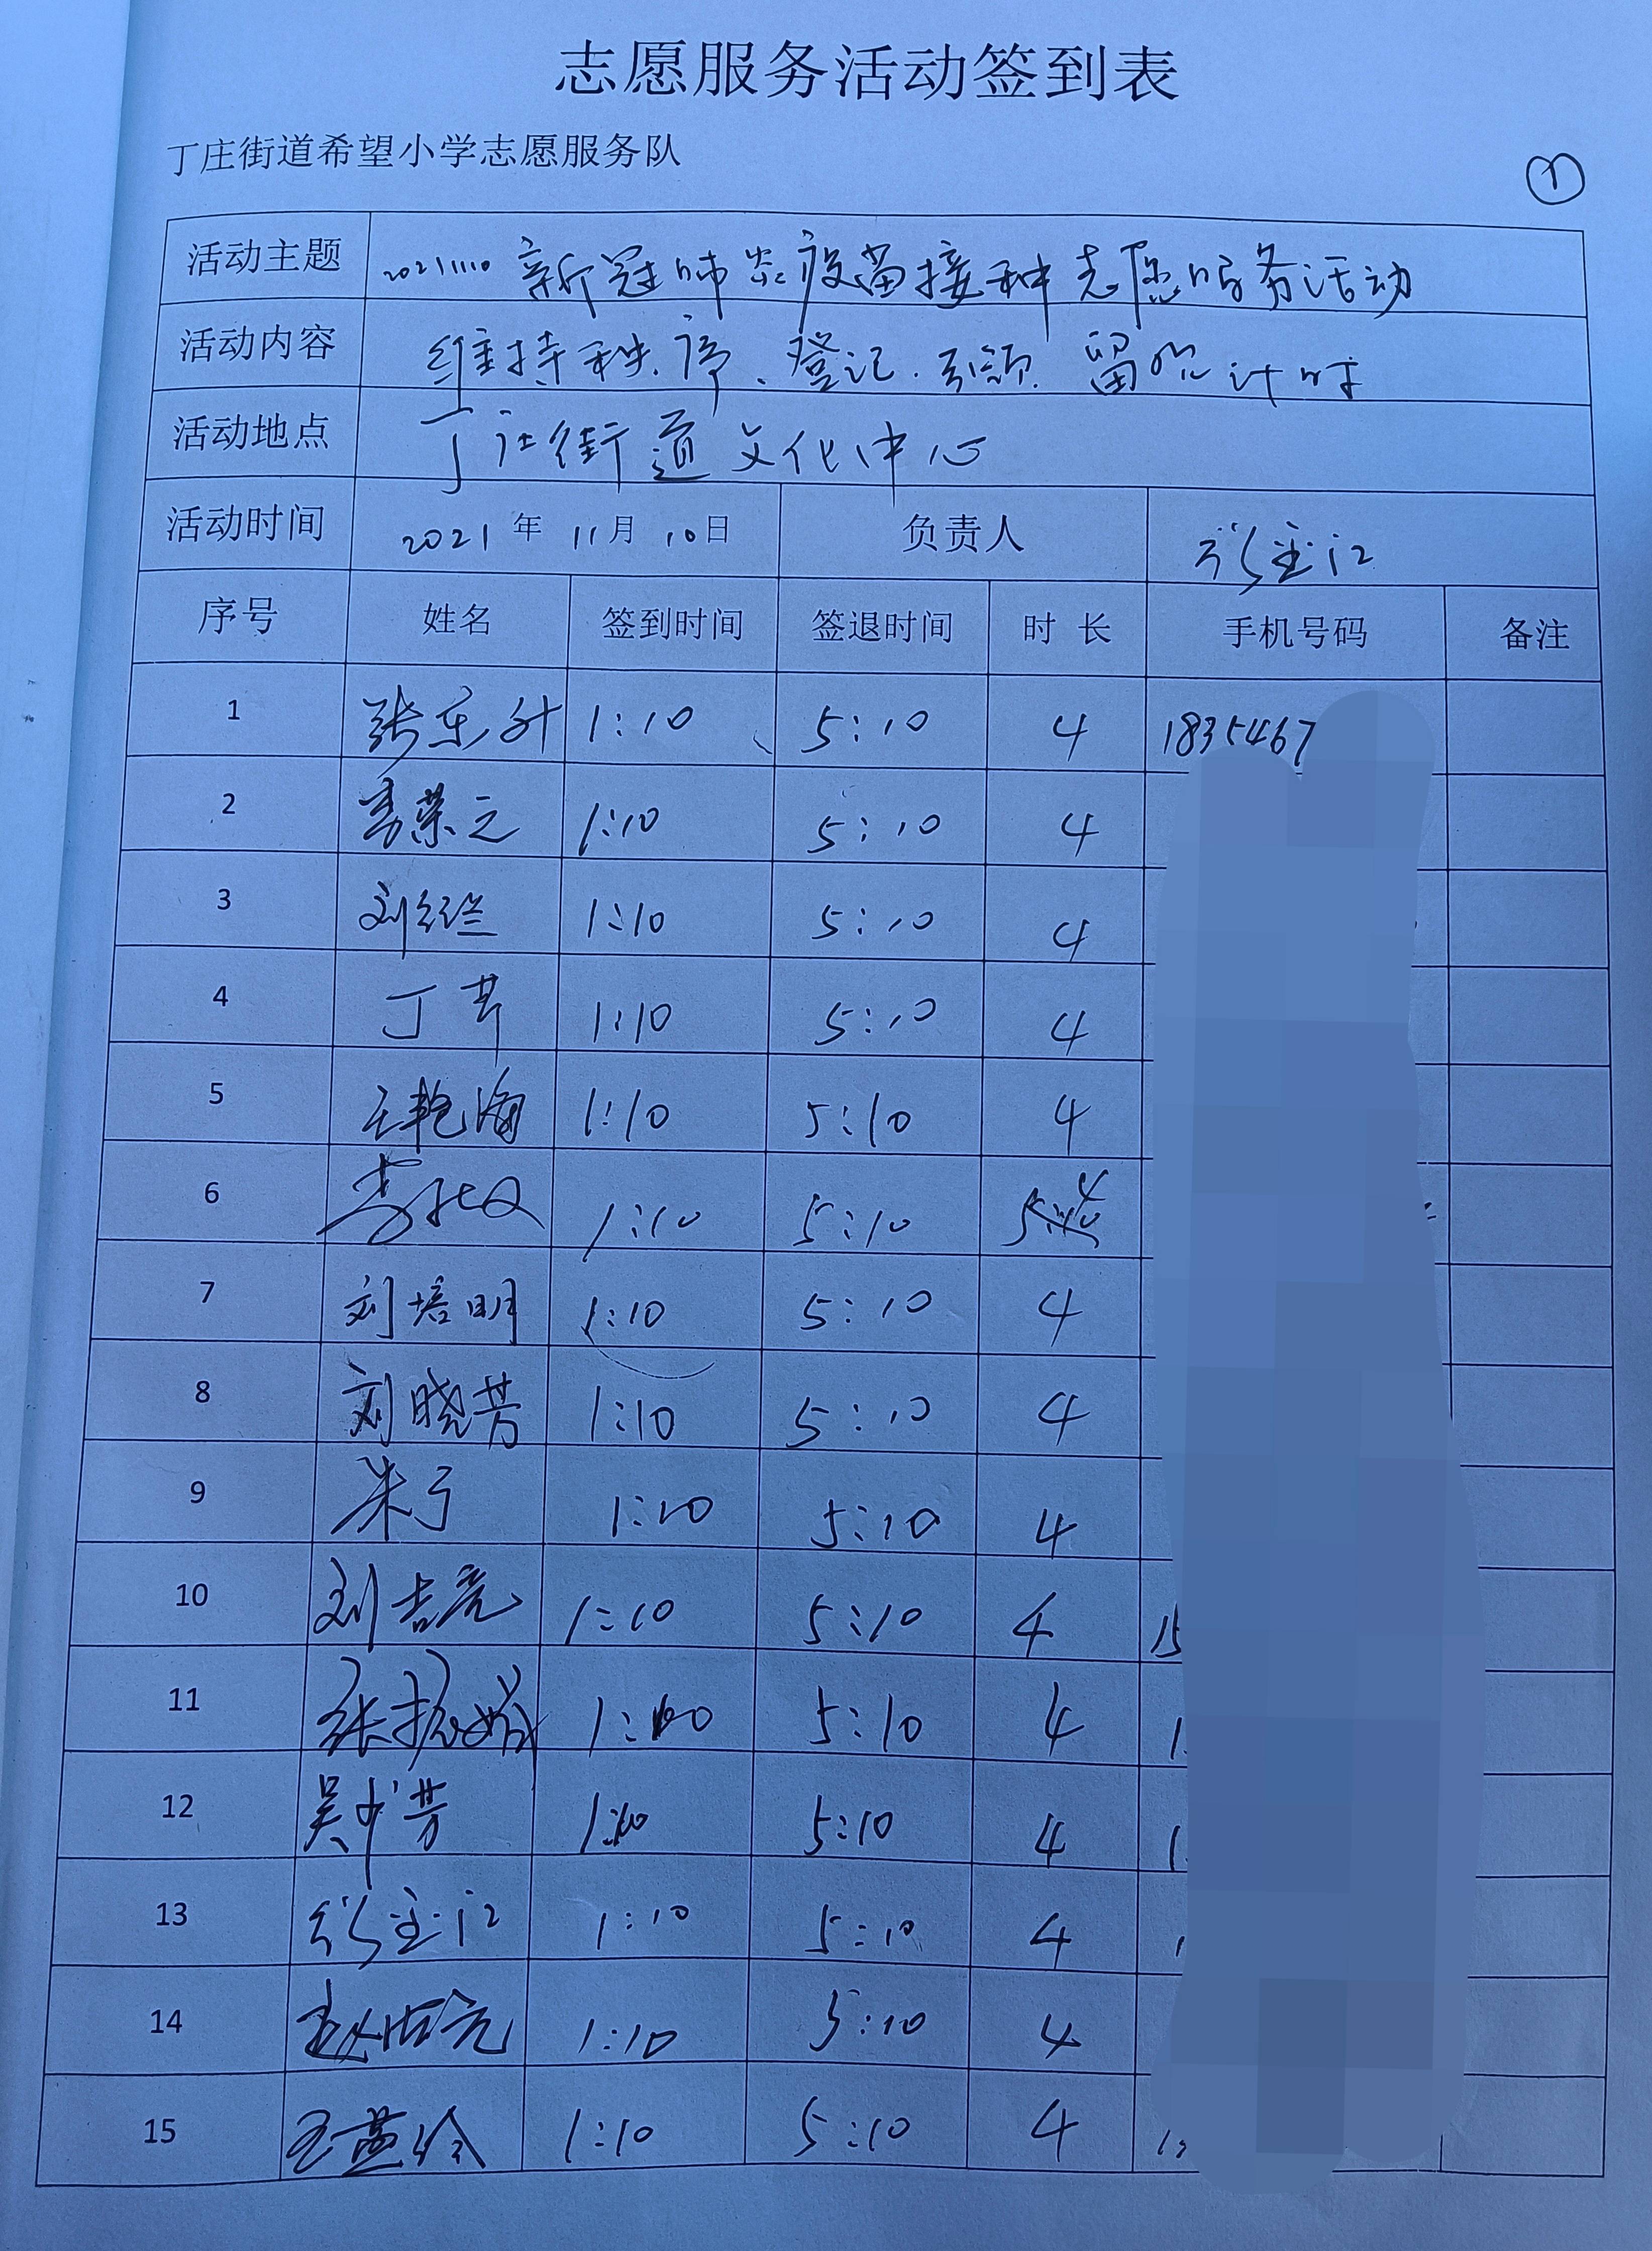 志愿服务活动签到表
丁庄街道希望小学志愿服务队
①
活动主题 20211110 新冠肺炎疫苗接种志愿服务活动
活动内容 维持秩序、登记、引领、留观计时
活动地点 丁庄街道文化中心
活动时间 2021年11月10日 负责人
序号 姓名 签到时间 签退时间 时长 手机号码 备注
1 张东升 1:10 5:10 4 1835467
2 荣之 1:10 5:10 4
3 刘红兰 1:10 5:10 4
4 丁芹 1:10 5:10 4
5 王艳海 1:10 5:10 4
6 李 1:10 5:10 4
7 刘培明 1:10 5:10 4
8 刘晓芳 1:10 5:10 4
9 朱 1:10 5:10 4
10 刘吉亮 1:10 5:10 4 15
11 张振 1:10 5:10 4 1
12 吴 芳 1:10 5:10 4 1
13 1:10 5:10 4 1
14 赵 亮 1:10 5:10 4
15 王燕玲 1:10 5:10 4 1